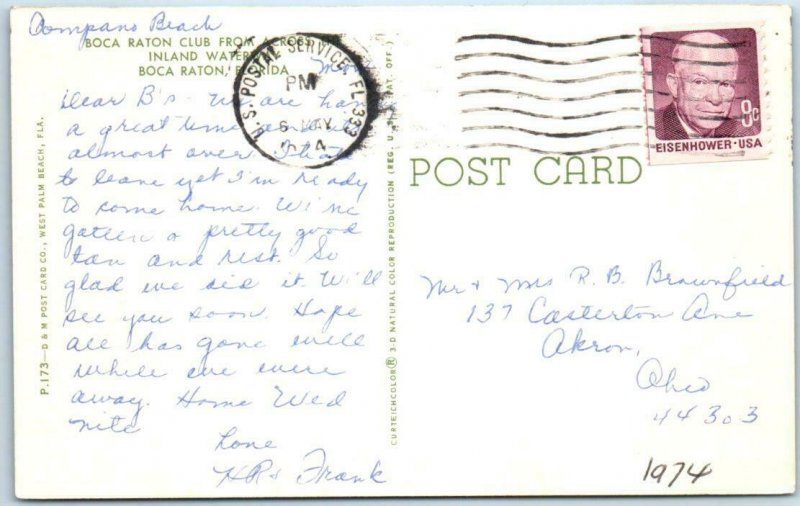 Pompano Beach
BOCA RATON CLUB FROM ACROSS
INLAND WATER
BOCA RATON, FLORIDA
Mon
Dear B's - We are hav
a great time and it's
almost over. I hate
to leave yet I'm ready
to come home. We've
gotten a pretty good
tan and rest. So
glad we did it. Will
see you soon. Hope
all has gone well
while we were
away. Home Wed
nite
Love
Frank
P.173—D & M POST CARD CO., WEST PALM BEACH, FLA.
CURTEICHCOLOR® 3-D NATURAL COLOR REPRODUCTION (REG. U.S. PAT. OFF.)
U.S. POSTAL SERVICE FL 333
PM
6 MAY
EISENHOWER·USA
POST CARD
Mr & Mrs R. B. Brownfield
137 Casterton Ave
Akron,
Ohio
44303
1974